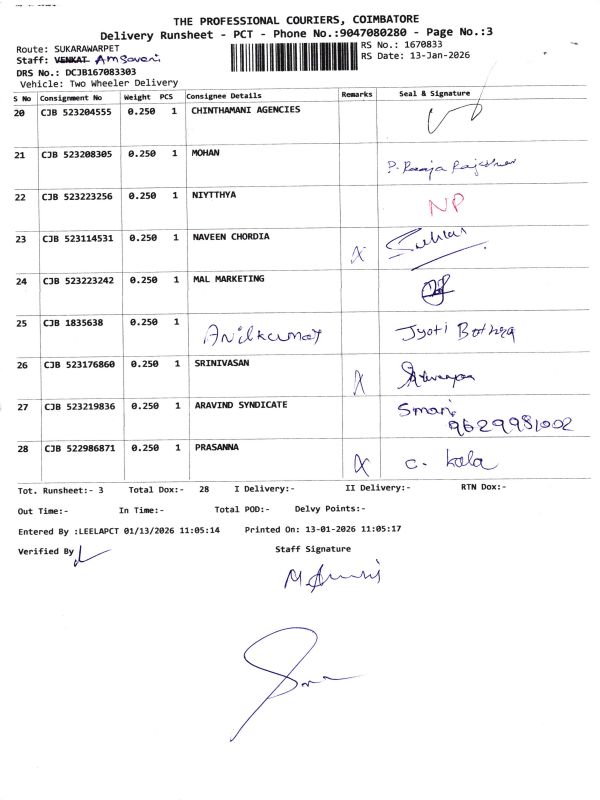 THE PROFESSIONAL COURIERS, COIMBATORE
Delivery Runsheet - PCT - Phone No.:9047080280 - Page No.:3
Route: SUKARAWARPET
RS No.: 1670833
Staff: VENKAT
RS Date: 13-Jan-2026
DRS No.: DCJB167083303
Vehicle: Two Wheeler Delivery
S No Consignment No Weight PCS Consignee Details Remarks Seal & Signature
20 CJB 523204555 0.250 1 CHINTHAMANI AGENCIES
21 CJB 523208305 0.250 1 MOHAN
22 CJB 523223256 0.250 1 NIYTTHYA NP
23 CJB 523114531 0.250 1 NAVEEN CHORDIA
24 CJB 523223242 0.250 1 MAL MARKETING
25 CJB 1835638 0.250 1 Anilkumar Jyoti Bothra
26 CJB 523176860 0.250 1 SRINIVASAN
27 CJB 523219836 0.250 1 ARAVIND SYNDICATE
9629981002
28 CJB 522986871 0.250 1 PRASANNA C. Kala
Tot. Runsheet:- 3 Total Dox:- 28 I Delivery:- II Delivery:- RTN Dox:-
Out Time:- In Time:- Total POD:- Delvy Points:-
Entered By :LEELAPCT 01/13/2026 11:05:14 Printed On: 13-01-2026 11:05:17
Verified By Staff Signature